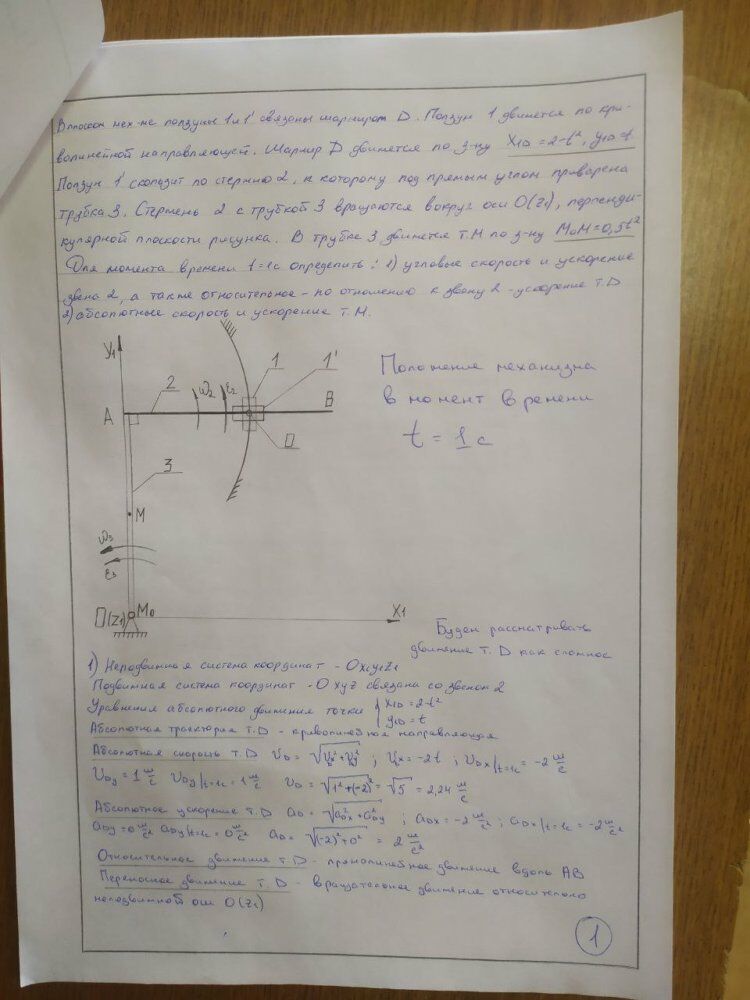 В плоском мех-ме ползуны 1 и 1' связаны шарниром D. Ползун 1 движется по кри-
волинейной направляющей. Шарнир D движется по з-ну X1D = 2-t², y1D = t
Ползун 1' скользит по стержню 2, к которому под прямым углом приварена
трубка 3. Стержень 2 с трубкой 3 вращаются вокруг оси O(Z1), перпенди-
кулярной плоскости рисунка. В трубке 3 движется т.М по з-ну M₀M = 0,5t²
Для момента времени t=1c определить: 1) угловые скорость и ускорение
звена 2, а также относительное - по отношению к звену 2 - ускорение т.D
2) абсолютные скорость и ускорение т.М.
Y1
2
ω2
ε2
1
1'
A
B
D
3
M
ω3
ε3
O(Z1)
M₀
X1
Положение механизма
в момент времени
t = 1 c
Будем рассматривать
движение т. D как сложное
1) Неподвижная система координат - Ox1y1z1
Подвижная система координат - Oxyz связана со звеном 2
Уравнения абсолютного движения точки { X1D = 2-t²
y1D = t
Абсолютная траектория т.D - криволинейная направляющая
Абсолютная скорость т.D υD = √(υx²+υy²) ; υx = -2t ; υDx/t=1c = -2 м/с
υDy = 1 м/с υDy/t=1c = 1 м/с υD = √(1²+(-2)²) = √5 = 2,24 м/с
Абсолютное ускорение т.D aD = √(a²Dx+a²Dy) ; aDx = -2 м/с² ; aDx/t=1c = -2 м/с²
aDy = 0 м/с² aDy/t=1c = 0 м/с² aD = √((-2)²+0²) = 2 м/с²
Относительное движение т.D - прямолинейное движение вдоль AB
Переносное движение т.D - вращательное движение относительно
неподвижной оси O(Z1)
1